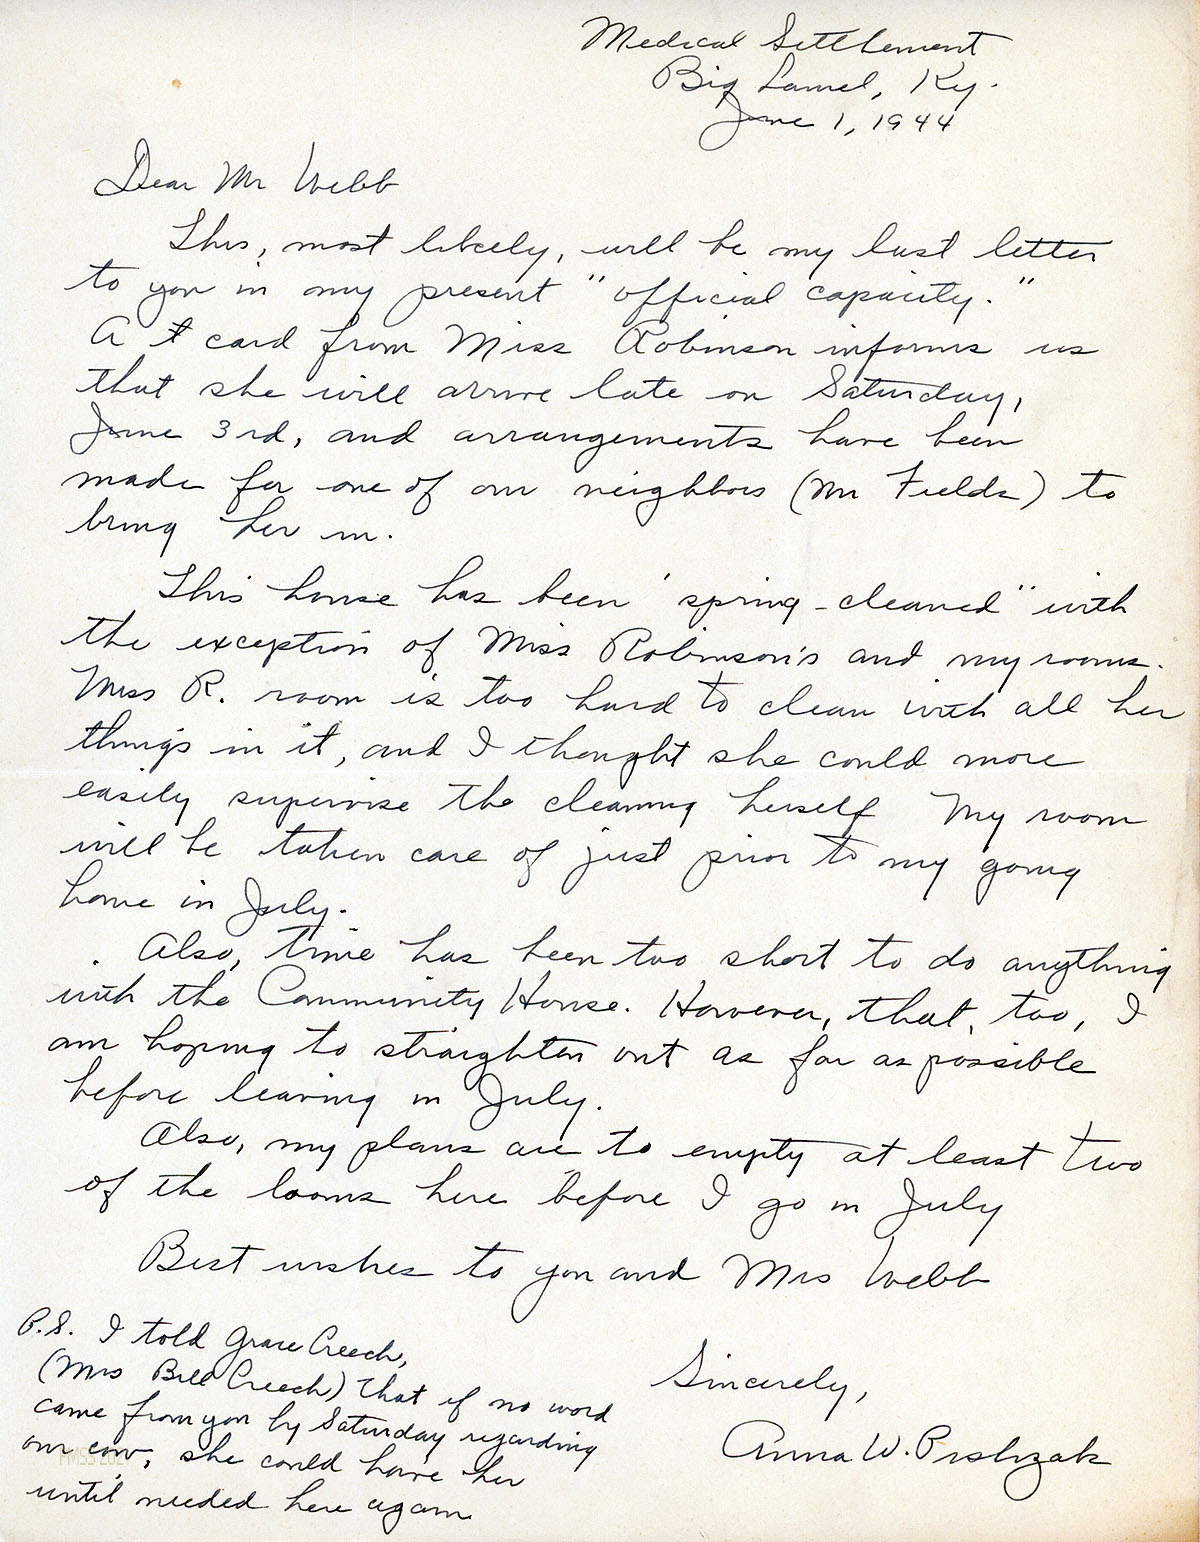 Medical Settlement
Big Laurel, Ky.
June 1, 1944
Dear Mr Webb
This, most likely, will be my last letter
to you in my present "official capacity."
A card from Miss Robinson informs us
that she will arrive late on Saturday,
June 3rd, and arrangements have been
made for one of our neighbors (Mr Fields) to
bring her in.
This house has been "spring-cleaned" with
the exception of Miss Robinson's and my rooms.
Miss R. room is too hard to clean with all her
things in it, and I thought she could more
easily supervise the cleaning herself My room
will be taken care of just prior to my going
home in July.
Also, time has been too short to do anything
with the Community House. However, that, too, I
am hoping to straighten out as far as possible
before leaving in July.
Also, my plans are to empty at least two
of the looms here before I go in July
Best wishes to you and Mrs Webb
Sincerely,
Anna W.
P.S. I told Grace Creech,
(Mrs Bill Creech) that if no word
came from you by Saturday regarding
our cow, she could have her
until needed here again